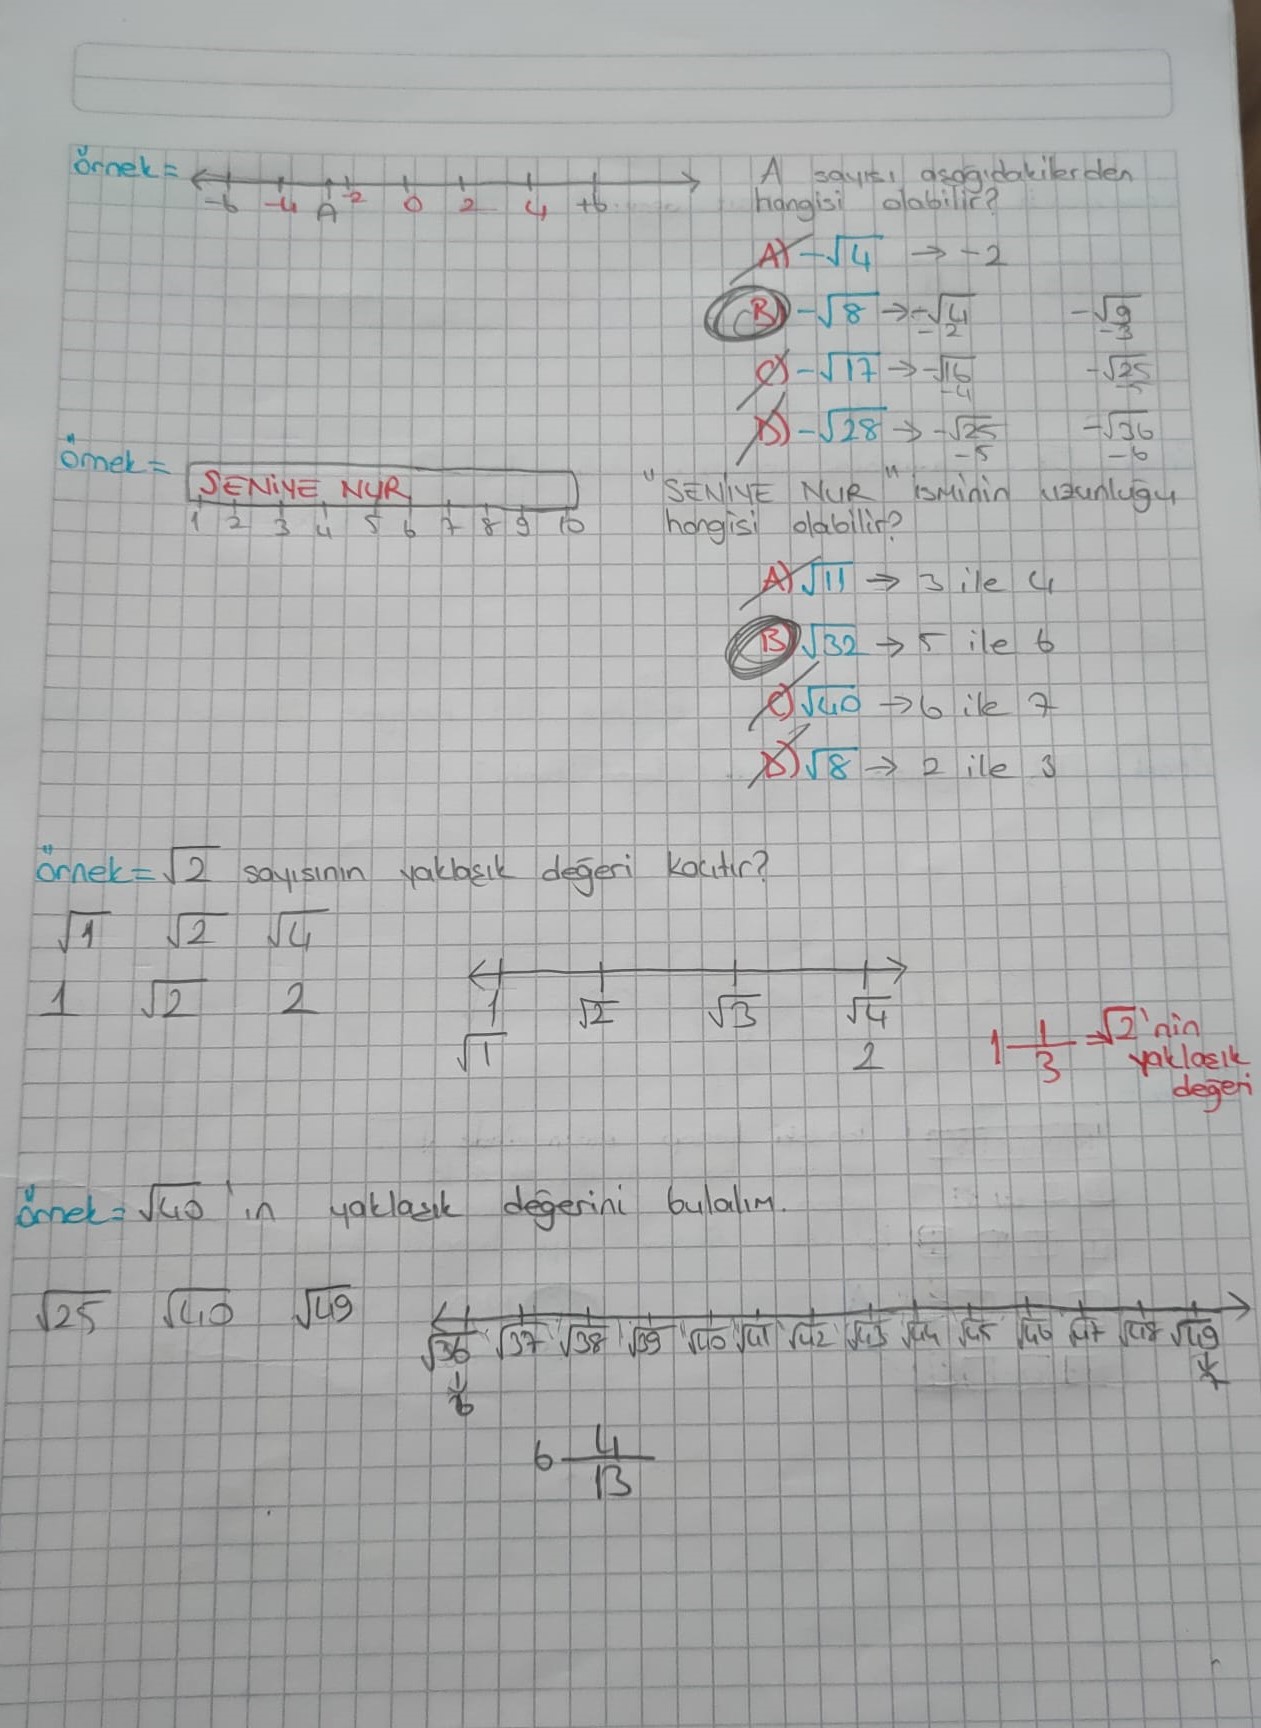 örnek =
-6 -4 A -2 0 2 4 +6
A sayısı aşağıdakilerden
hangisi olabilir?
A) -√4 → -2
B) -√8 → -√4 -√9
-2 -3
C) -√17 → -√16 -√25
-4 -5
D) -√28 → -√25 -√36
-5 -6
örnek =
SENİYE NUR
1 2 3 4 5 6 7 8 9 10
"SENİYE NUR" isminin uzunluğu
hangisi olabilir?
A) √11 → 3 ile 4
B) √32 → 5 ile 6
C) √40 → 6 ile 7
D) √8 → 2 ile 3
örnek = √2 sayısının yaklaşık değeri kaçtır?
√1 √2 √4
1 √2 2
1 √2 √3 √4
√1 2
1 1/3 = √2'nin
yaklaşık
değeri
örnek = √40'ın yaklaşık değerini bulalım.
√25 √40 √49
√36 √37 √38 √39 √40 √41 √42 √43 √44 √45 √46 √47 √48 √49
6 7
6 4/13